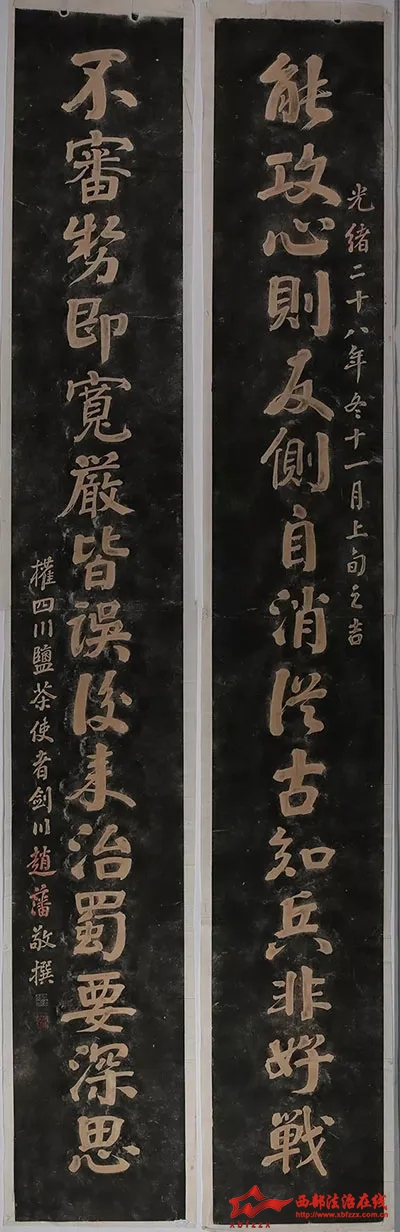 能攻心則反側自消從古知兵非好戰
光緒二十八年冬十一月上旬之吉
不審勢即寬嚴皆誤後來治蜀要深思
權四川鹽茶使者劍川趙藩敬撰
西部法治在线
XBFZZX
www.xbfzzx.com.cn